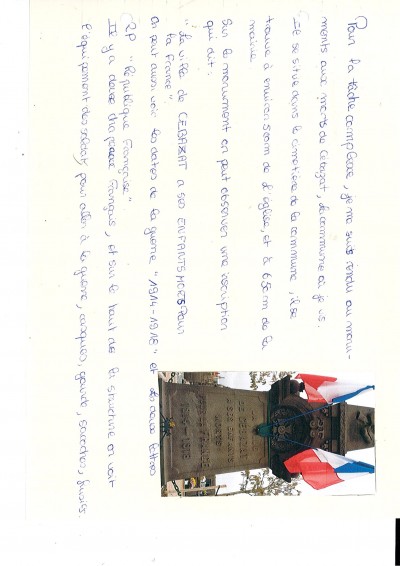 Pour la tâche complexe, je me suis rendu au monu-
ments aux morts de Cebazat, la commune où je vis.
Il se situe dans le cimetière de la commune, il se
trouve à environ 500m de l'église, et à 650m de la
mairie.
Sur le monument on peut observer une inscription
qui dit:
"La ville de CEBAZAT a ses ENFANTS MORTS Pour
la France"
On peut aussi voir les dates de la guerre "1914-1918" et les deux lettres
RF "République Française"
Il y a deux drapeaux Français, et sur le haut de la structure on voit
l'équipement des soldats pour aller à la guerre, casques, gourde, sacoches, fusils.
1914-1918